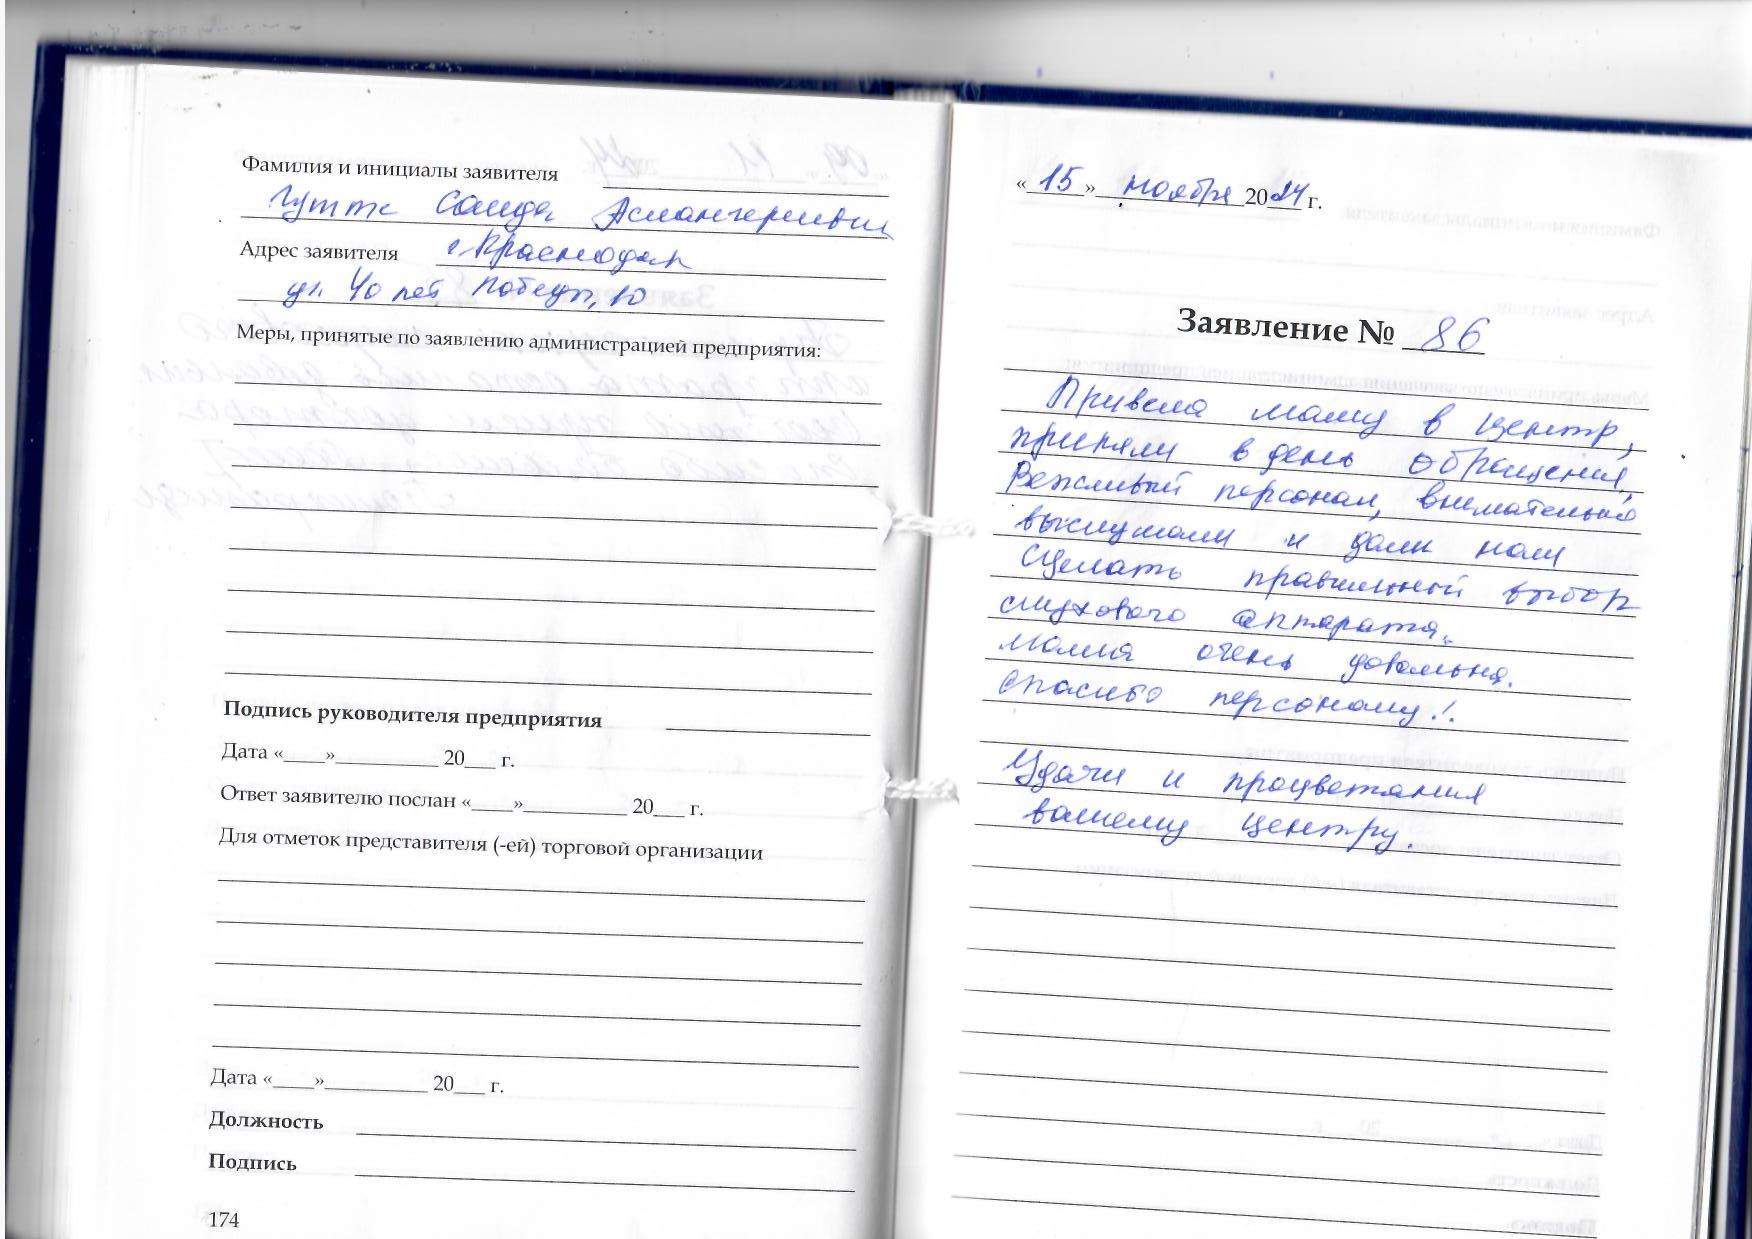 Фамилия и инициалы заявителя
Гутте Саида Аслангериевн
Адрес заявителя г. Краснодар
ул. 40 лет Победы, 10
Меры, принятые по заявлению администрацией предприятия:
Подпись руководителя предприятия
Дата «____»__________ 20___ г.
Ответ заявителю послан «____»__________ 20___ г.
Для отметок представителя (-ей) торговой организации
Дата «____»__________ 20___ г.
Должность
Подпись
174
«15» ноября 2024 г.
Заявление № 86
Привела маму в центр,
приняли в день обращения,
Вежливый персонал, внимательно
выслушали и дали нам
сделать правильный выбор
слухового аппарата.
мамия очень довольна.
спасибо персоналу!.
Удачи и процветания
вашему центру.